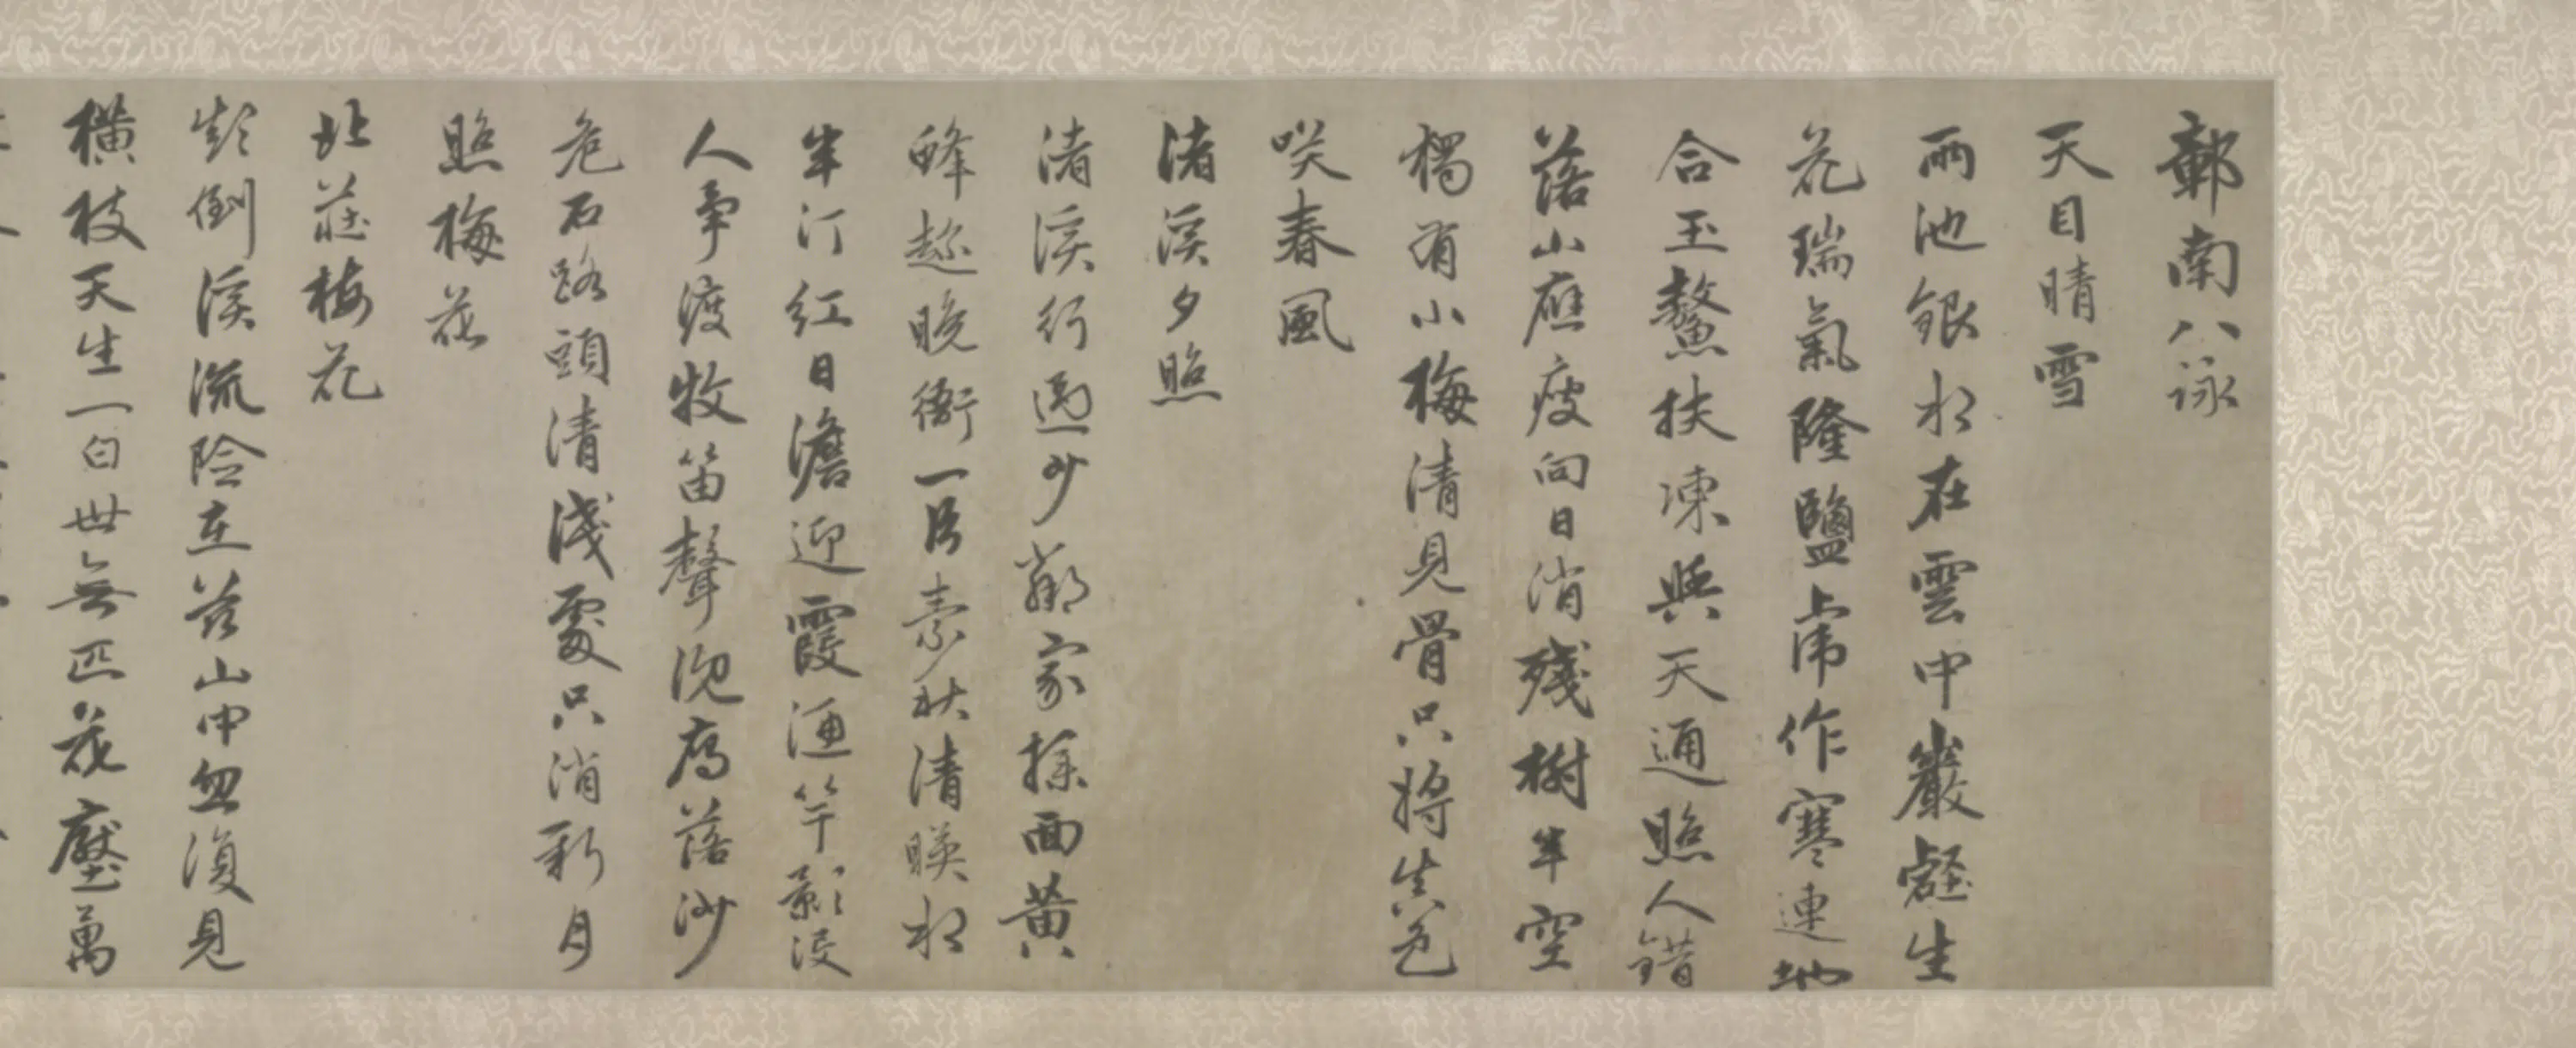 鄣南八詠
天目晴雪
兩池銀水在雲中巖壑生
花瑞氣隆鹽虎作寒連地
合玉鰲扶凍與天通照人錯
落山應瘦向日消殘樹半空
獨有小梅清見骨只將生色
咲春風
渚溪夕照
渚溪行過少鄰家摇面黃
蜂趂晚衙一片素秋清暎水
半汀紅日澹迎霞漁竿影沒
人爭渡牧笛聲沉雁落沙
危石路頭清淺處只消新月
照梅花
北莊梅花
倒溪流險在茲山中忽復見
橫枝天生一白世無匹花壓萬